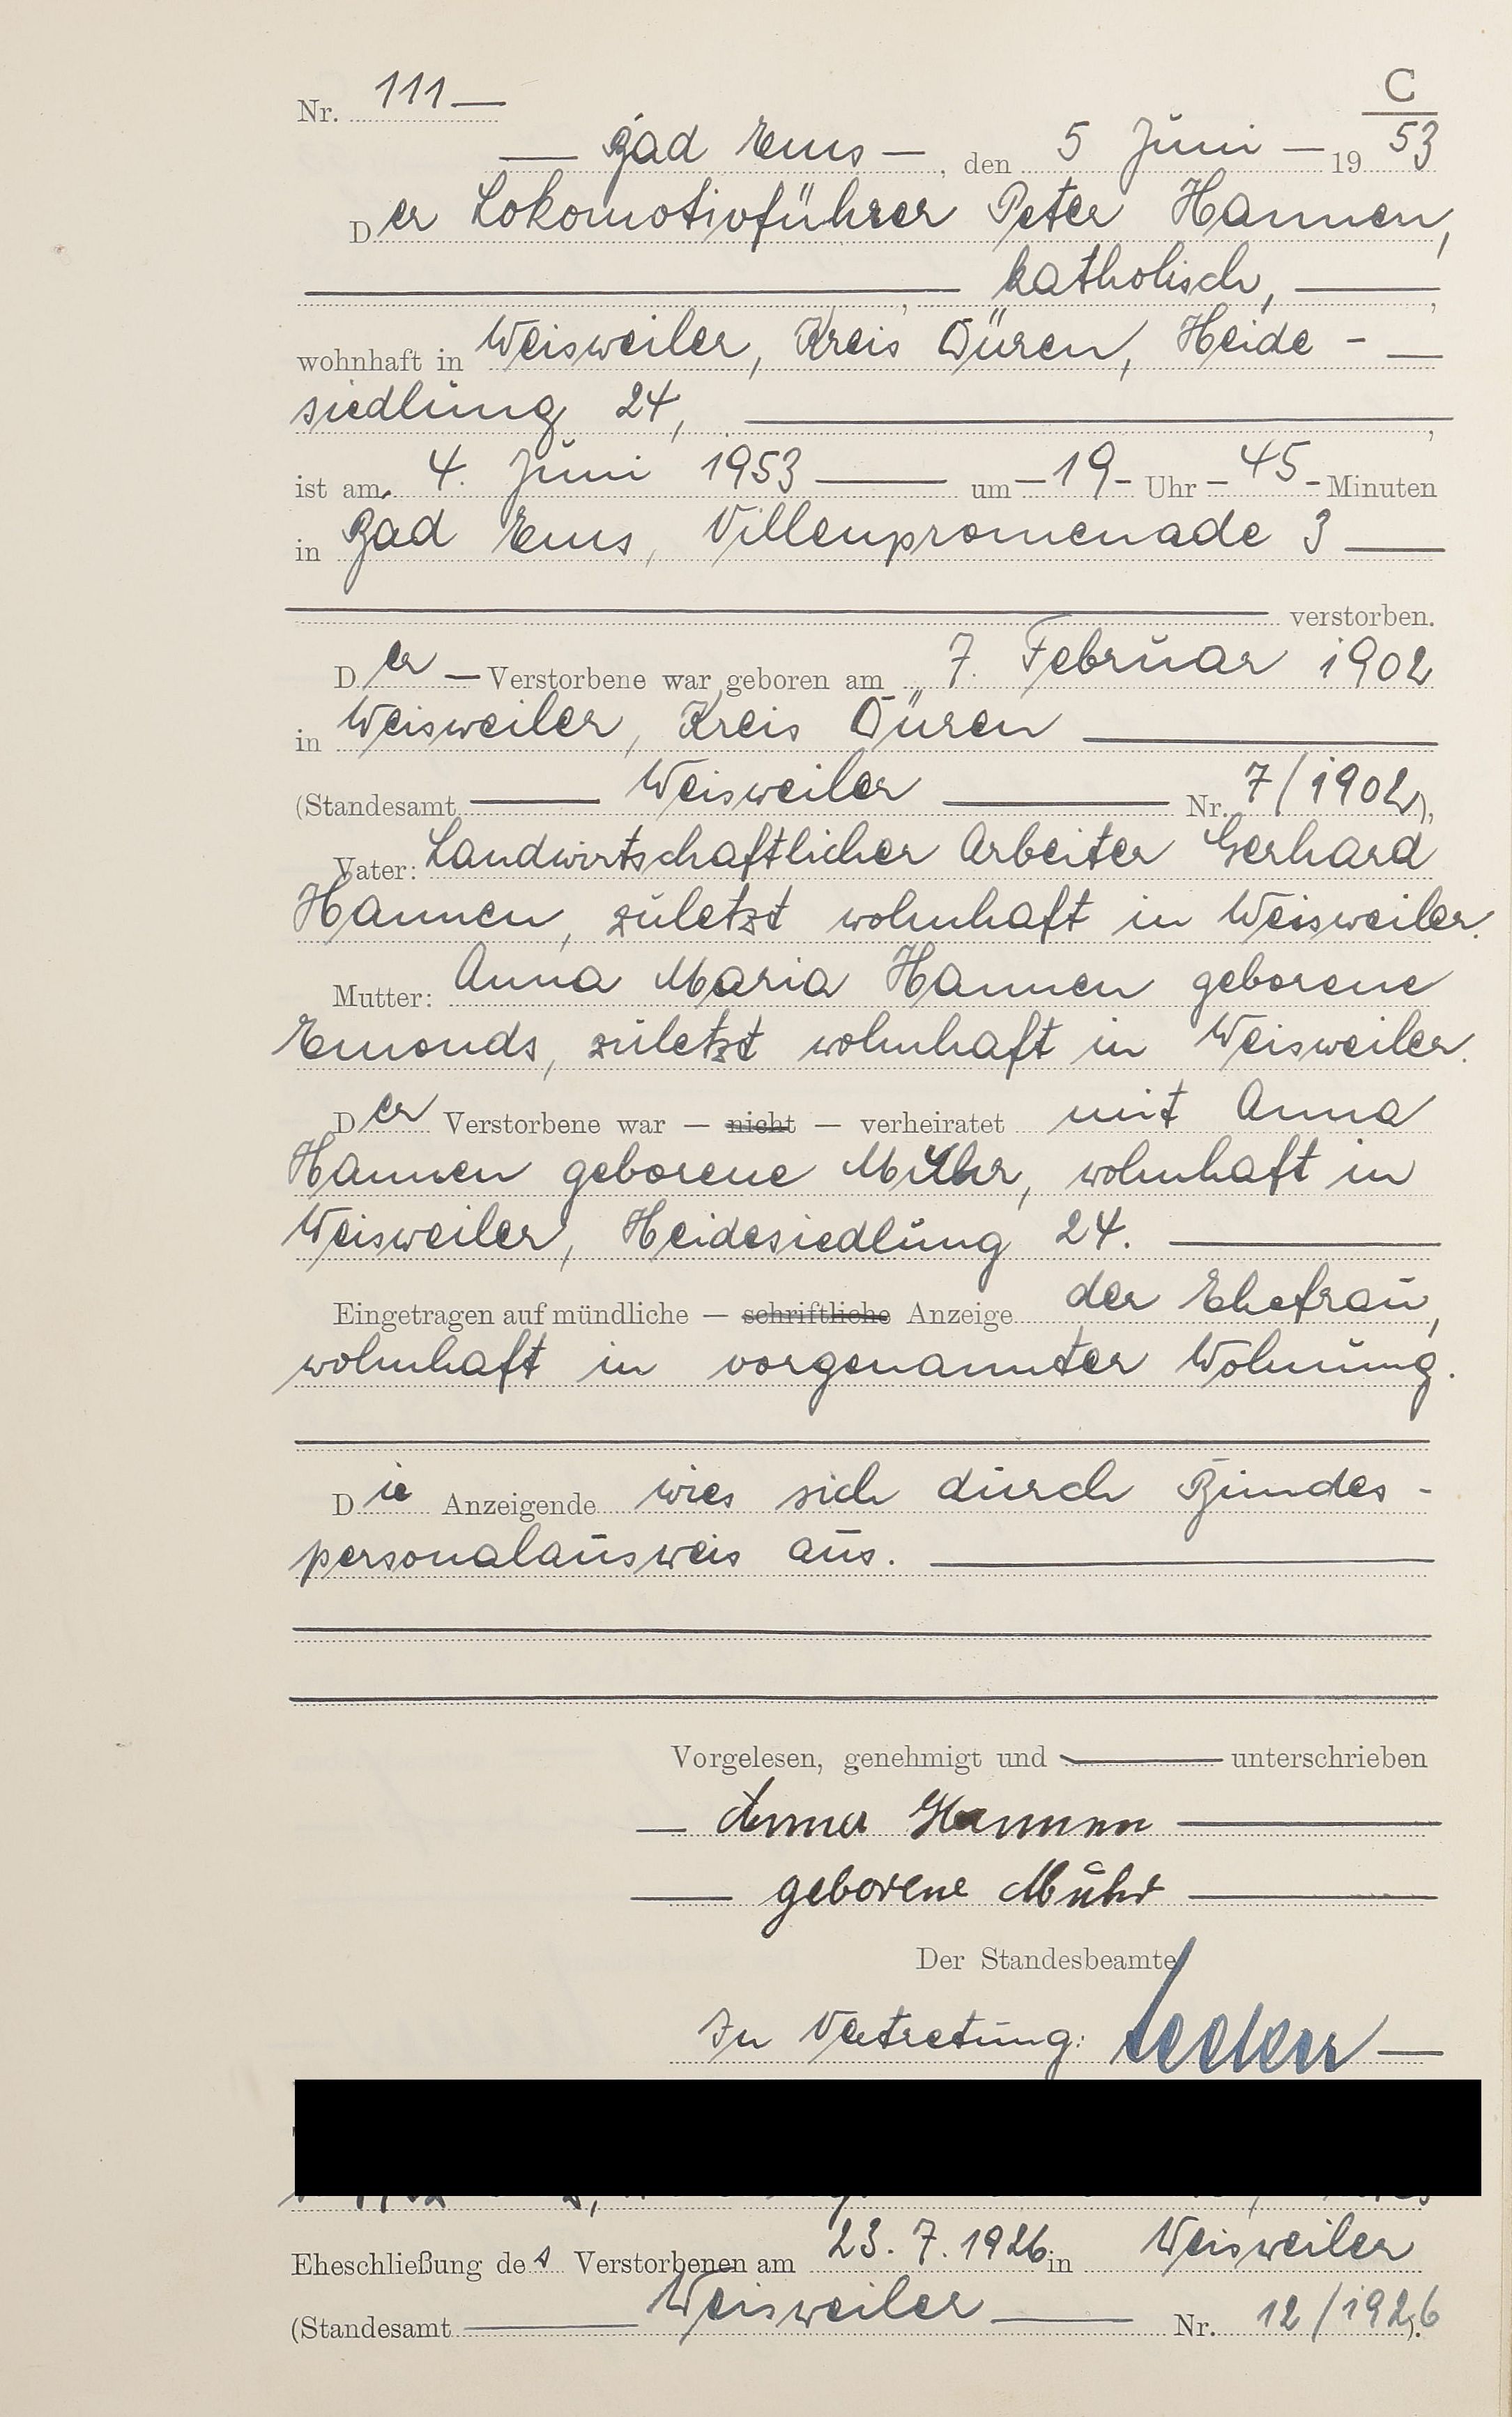 C
Nr. 111 —
— Bad Ems —, den 5 Juni — 19 53
Der Lokomotivführer Peter Hannen,
—, katholisch, —,
wohnhaft in Weisweiler, Kreis Düren, Heide - —
siedlung 24, —,
ist am 4. Juni 1953 — um — 19 - Uhr - 45 - Minuten
in Bad Ems, Villenpromenade 3 —
— verstorben.
Der — Verstorbene war geboren am 7. Februar 1902
in Weisweiler, Kreis Düren —
(Standesamt — Weisweiler — Nr. 7/1902),
Vater: Landwirtschaftlicher Arbeiter Gerhard
Hannen, zuletzt wohnhaft in Weisweiler.
Mutter: Anna Maria Hannen geborene
Emonds, zuletzt wohnhaft in Weisweiler.
Der Verstorbene war — nicht — verheiratet mit Anna
Hannen geborene Muhr, wohnhaft in
Weisweiler, Heidesiedlung 24. —
Eingetragen auf mündliche — schriftliche Anzeige der Ehefrau,
wohnhaft in vorgenannter Wohnung.
Die Anzeigende wies sich durch Bundes -
personalausweis aus. —
Vorgelesen, genehmigt und — unterschrieben
— Anna Hannen —
— geborene Muhr —
Der Standesbeamte
In Vertretung:
Eheschließung des Verstorbenen am 23. 7. 1926 in Weisweiler
(Standesamt — Weisweiler — Nr. 12/1926).